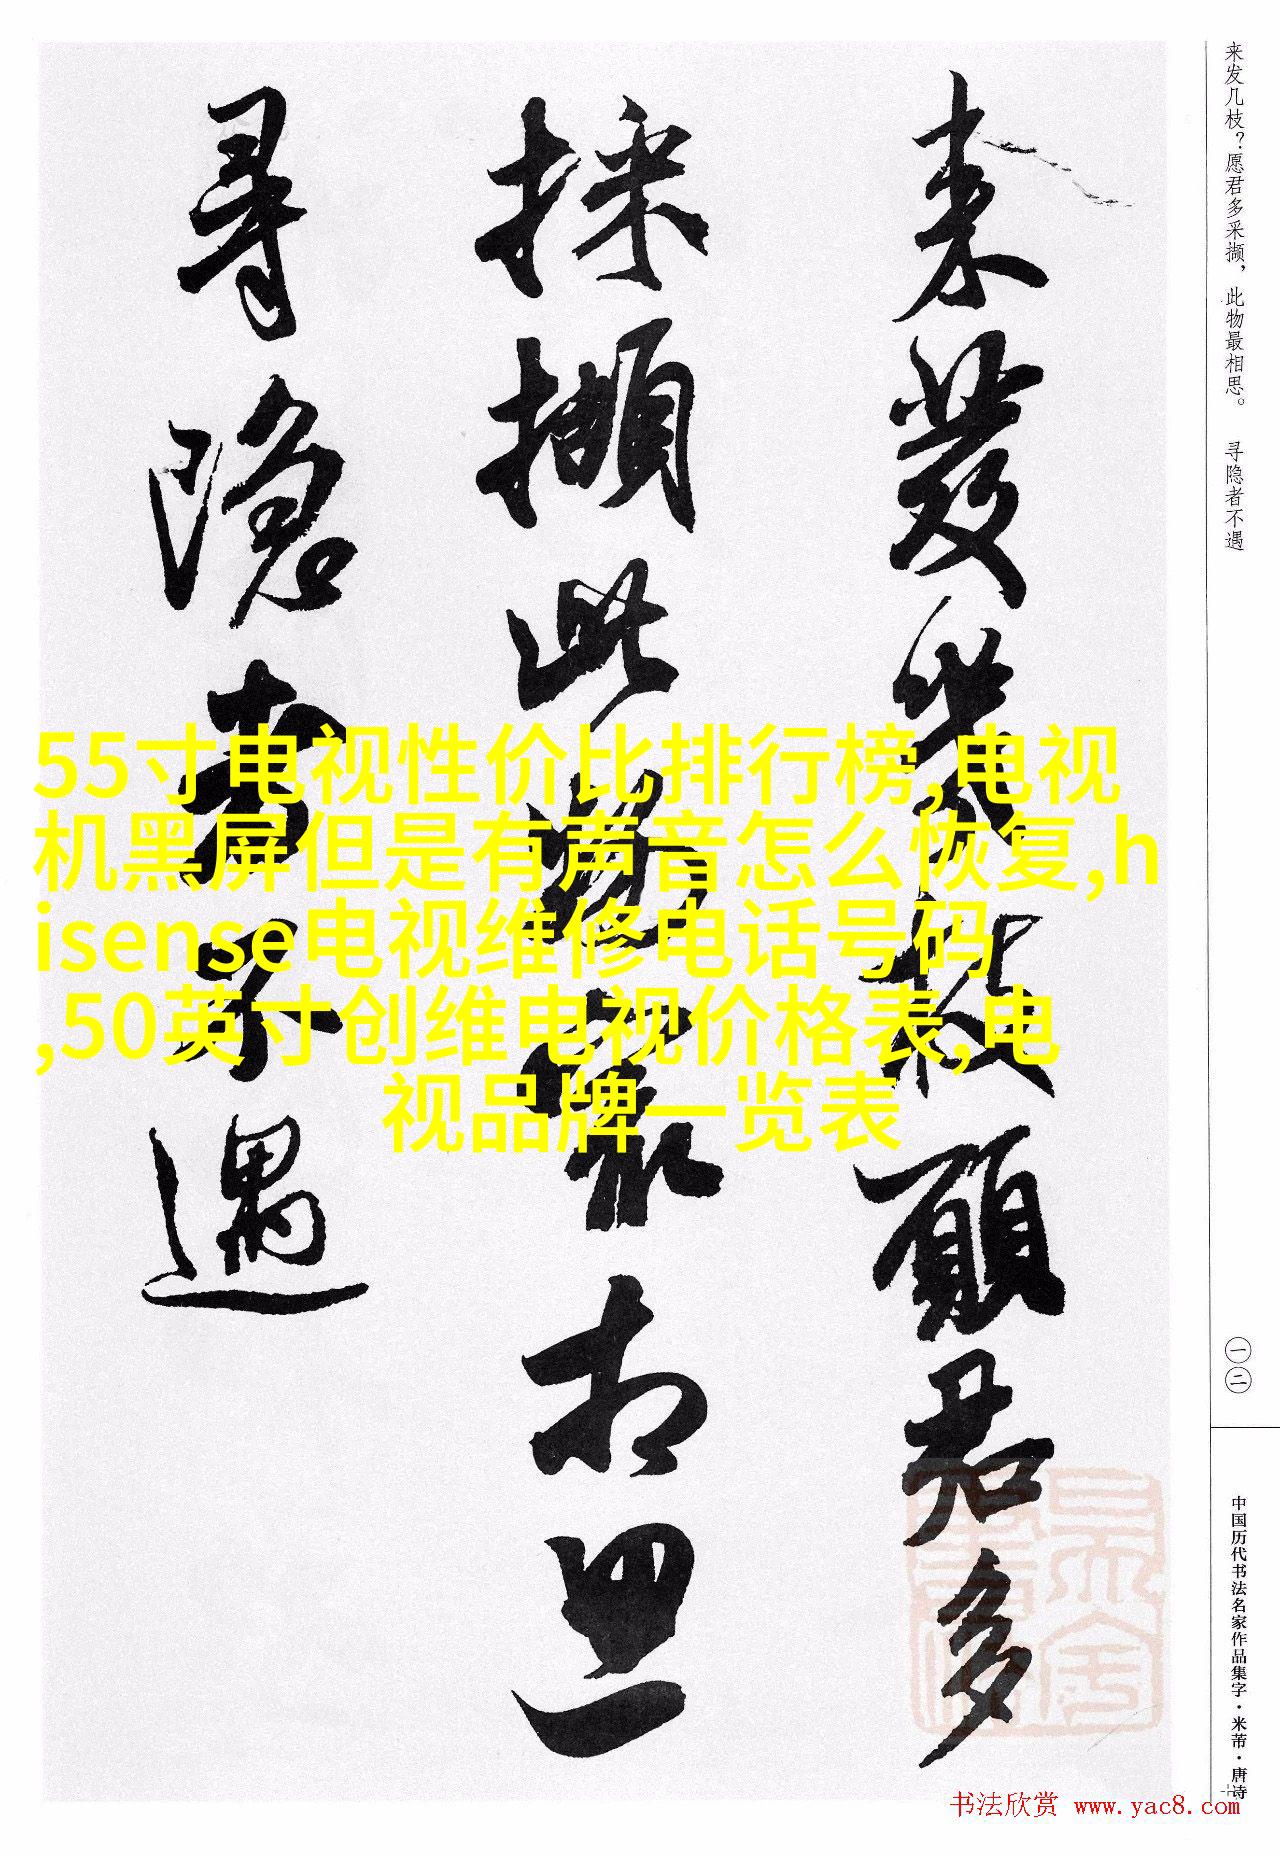 来发几枝？愿君多采撷，此物最相思。 寻隐者不遇
來發幾枝願君多
採擷此物最相思
尋隱者不遇
55寸电视性价比排行榜,电视
机黑屏但是有声音怎么恢复,h
isense电视维修电话号码
,50英寸创维电视价格表,电
视品牌一览表
一二
中国历代书法名家作品集字·米芾·唐诗
书法欣赏 www.yac8.com